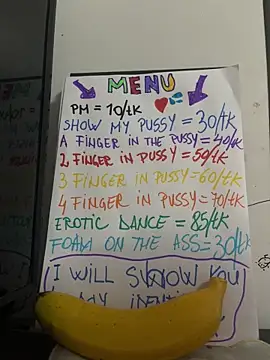 MENU
PM = 10/tk
SHOW MY PUSSY = 30/tK
A FINGER IN THE PUSSY = 40/tk
2 FINGER IN PUSSY = 50/tK
3 FINGER IN PUSSY = 60/t.K
4 FINGER IN PUSSY = 70/tK
EROTIC DANCE = 85/tK
FOAM ON THE ASS = 30/tK
I WILL SHOW YOU
MY